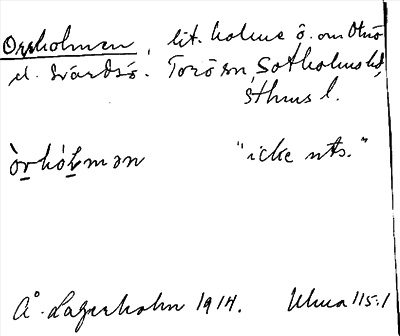 Orrholmen, lit. holme ö. om Utnö
o. Svärdsö. Torö sn, Sotholms hd,
Sthms l.
òrhòlmən "icke uts."
Å. Lagerholm 1914. Utma 115:1